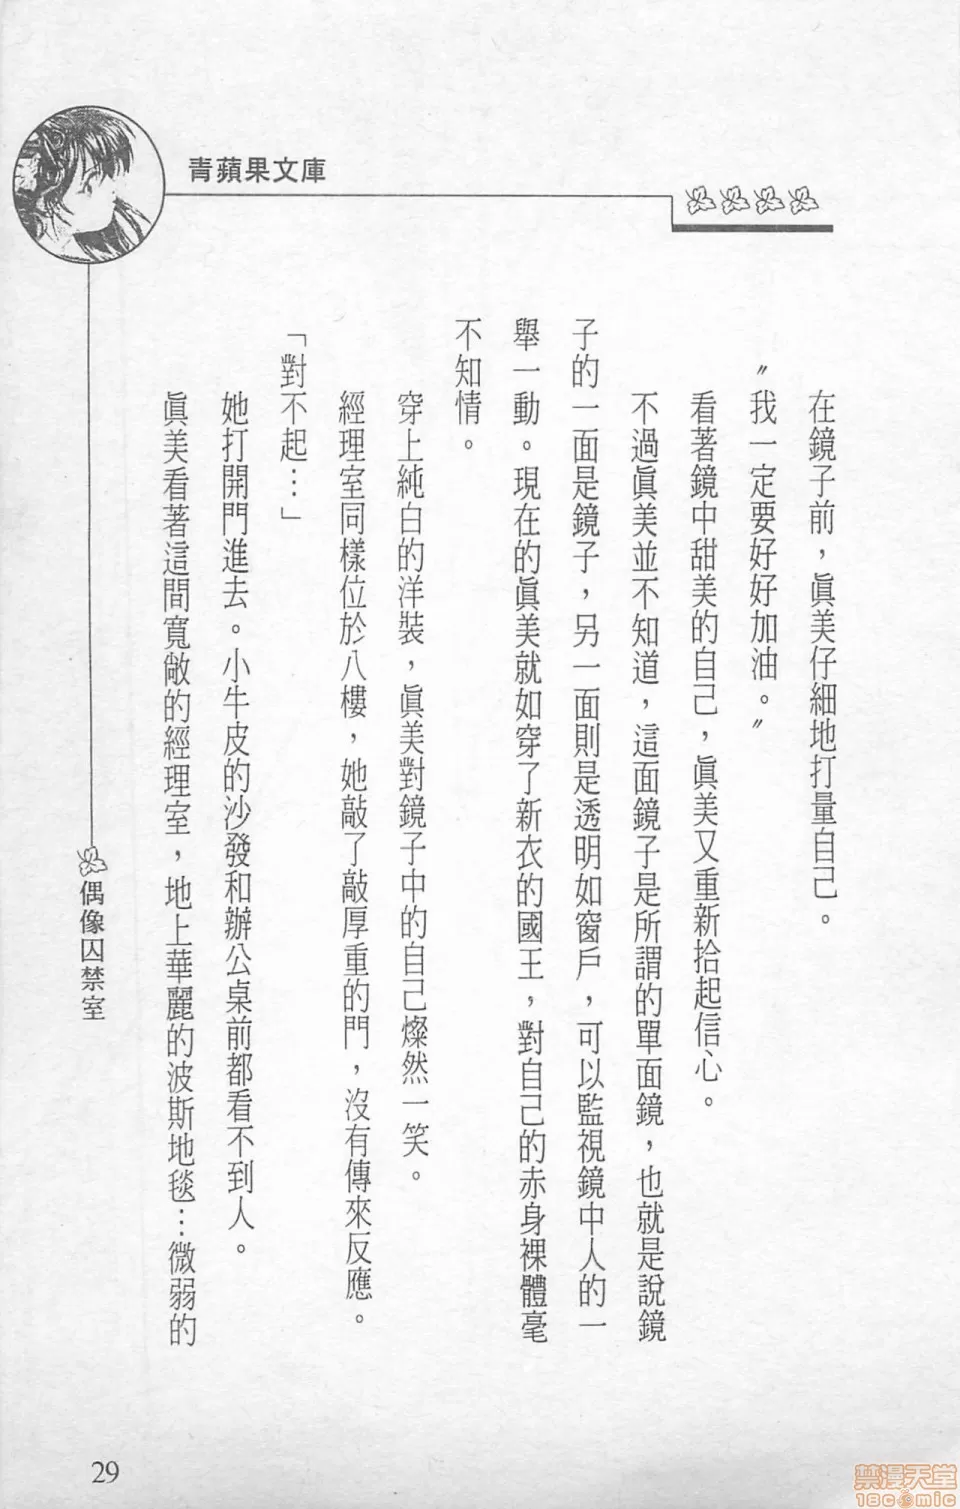 青蘋果文庫
在鏡子前，眞美仔細地打量自己。
〝我一定要好好加油。〞
看著鏡中甜美的自己，眞美又重新拾起信心。
不過眞美並不知道，這面鏡子是所謂的單面鏡，也就是說鏡
子的一面是鏡子，另一面則是透明如窗戶，可以監視鏡中人的一
舉一動。現在的眞美就如穿了新衣的國王，對自己的赤身裸體毫
不知情。
穿上純白的洋裝，眞美對鏡子中的自己燦然一笑。
經理室同樣位於八樓，她敲了敲厚重的門，沒有傳來反應。
「對不起…」
她打開門進去。小牛皮的沙發和辦公桌前都看不到人。
眞美看著這間寬敞的經理室，地上華麗的波斯地毯…微弱的
偶像囚禁室
29
禁漫天堂
18comic